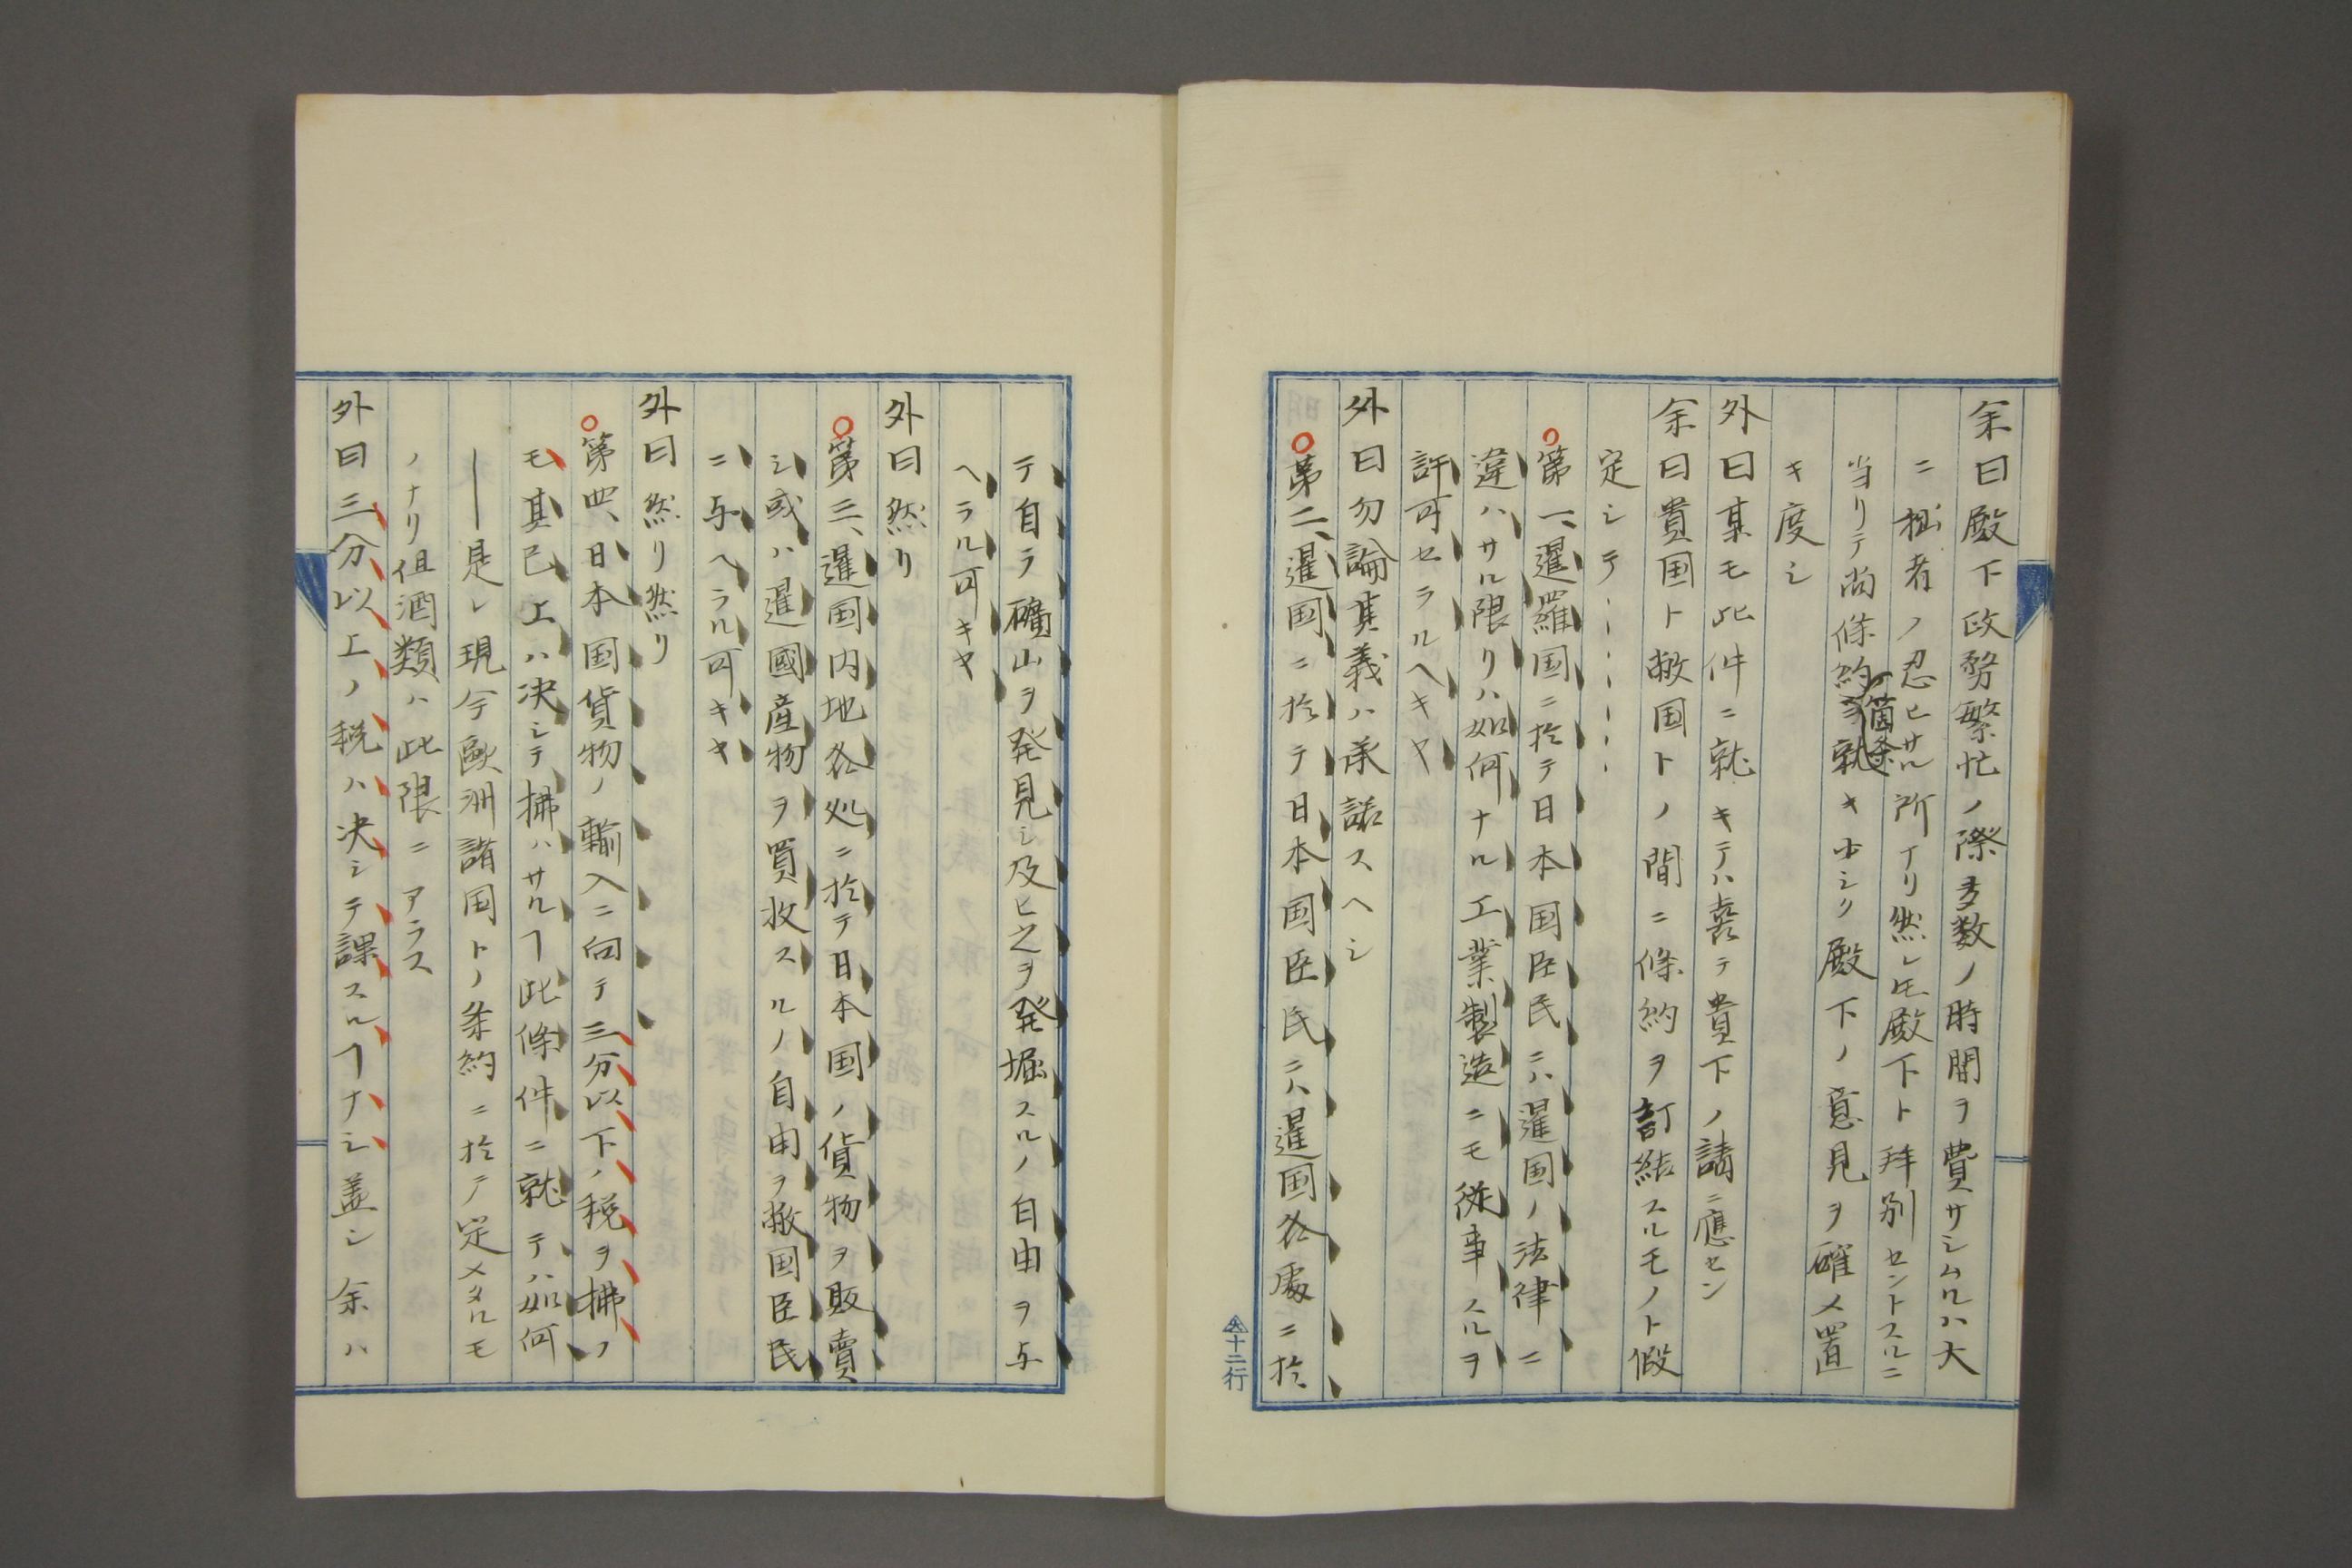 余曰殿下政務繁忙ノ際多数ノ時間ヲ費サシムルハ大
ニ拙者ノ忍ヒサル所ナリ然レ𪜈殿下ト拜別セントスルニ
当リテ尚條約箇条ニ就キ少シク殿下ノ意見ヲ確メ置
キ度シ
外曰某モ此件ニ就キテハ喜テ貴下ノ請ニ應セン
余曰貴国ト敝国トノ間ニ條約ヲ訂結スルモノト假
定シテ、、、、、、
○第一、暹羅国ニ於テ日本国臣民ニハ暹国ノ法律ニ
違ハサル限リハ如何ナル工業製造ニモ從事スルヲ
許可セラルヘキヤ
外曰勿論其義ハ承諾スヘシ
○第二、暹国ニ於テ日本国臣民ニハ暹国各處ニ於
仝十二行
テ自ラ礦山ヲ発見シ及ヒ之ヲ発堀スルノ自由ヲ与
ヘラル可キヤ
外曰然リ
○第三、暹国内地各処ニ於テ日本国ノ貨物ヲ販賣
シ或ハ暹國産物ヲ買收スルノ自由ヲ敝国臣民
ニ与ヘラル可キヤ
外曰然リ然リ
○第四、日本国貨物ノ輸入ニ向テ三分以下ノ税ヲ拂ノ
モ其已上ハ决シテ拂ハサルヿ此條件ニ就テハ如何
―是レ現今歐洲諸国トノ条約ニ於テ定メタルモ
ノナリ但酒類ハ此限ニアラス
外曰三分以上ノ税ハ决シテ課スルヿナシ盖シ余ハ